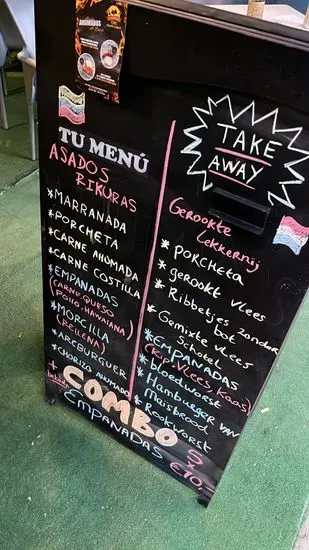 AHUMADOS
TU MENÚ
ASADOS
RIKURAS
* MARRANADA
* PORCHETA
* CARNE AHOMADA
* CARNE COSTILLA
* EMPANADAS
(CARNE, QUESO
POLLO, HAWAIANA)
* MORCILLA
(RELLENA)
* AREBURGUER
* CHORIZO AHUMADO
TAKE
AWAY
Gerookte
Lekkernij
* PORCHETA
* gerookt vlees
* Ribbetjes zonder
bot
* Gemixte vlees
Schotel
* EMPANADAS
(Kip, Vlees, Kaas)
* bloedworst
* Hamburger van
Maisbrood
* Rookworst
COMBO 5
EMPANADAS €10,-